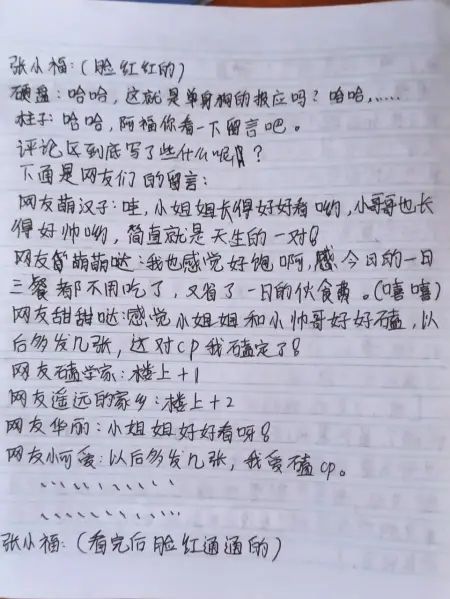 张小福:(脸红红的)
硬盘:哈哈,这就是单身狗的报应吗?哈哈,.....
柱子:哈哈,阿福你看一下留言吧。
评论区到底写了些什么呢?
下面是网友们的留言:
网友萌汉子:哇,小姐姐长得好好看哟,小哥哥也长
得好帅哟,简直就是天生的一对!
网友萌萌哒:我也感觉好饱啊,感今日的一日
三餐都不用吃了,又省了一日的伙食费。(嘻嘻)
网友甜甜哒:感觉小姐姐和小帅哥好好磕,以
后多发几张,这对cp我磕定了!
网友磕学家:楼上+1
网友遥远的家乡:楼上+2
网友华丽:小姐姐好好看呀!
网友小可爱:以后多发几张,我爱磕cp。
、、、、、、
、、、、、、、、、、
张小福:(看完后脸红通通的)